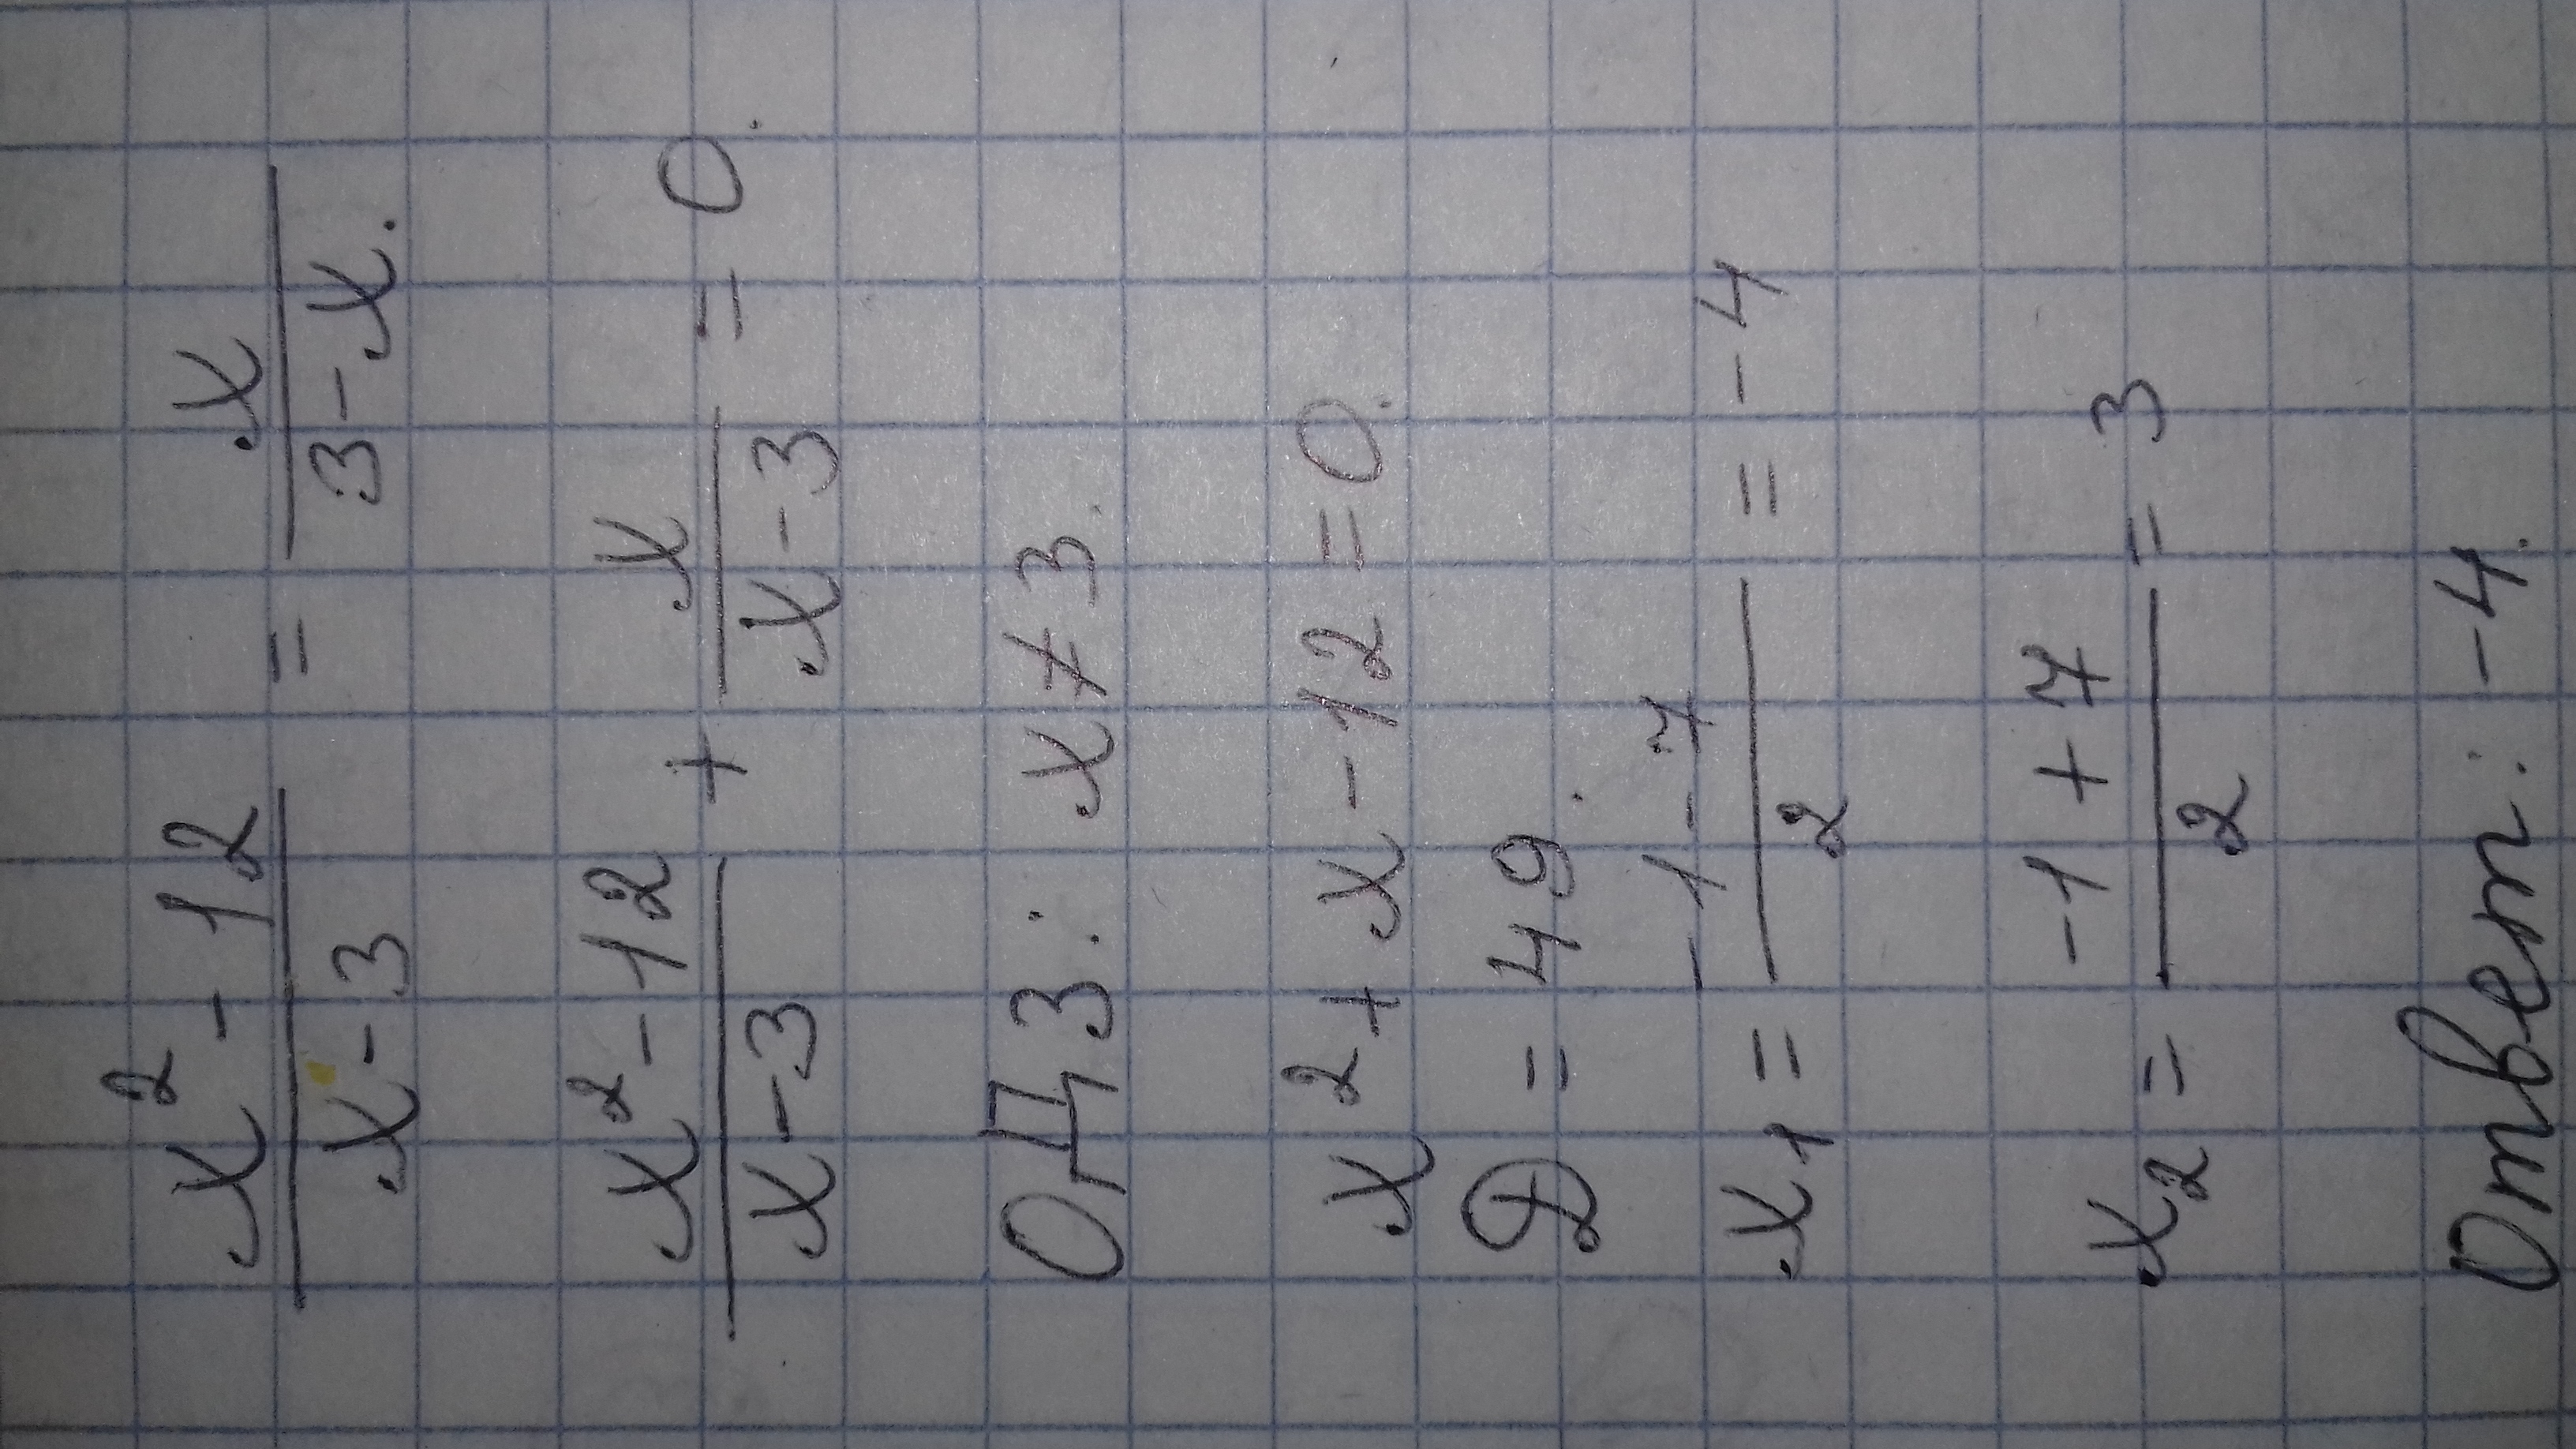 x² - 12 / x - 3 = x / 3 - x.
x² - 12 / x - 3 + x / x - 3 = 0.
ОДЗ: x ≠ 3.
x² + x - 12 = 0.
D = 49.
x₁ = -1 - 7 / 2 = -4
x₂ = -1 + 7 / 2 = 3
Ответ: -4.